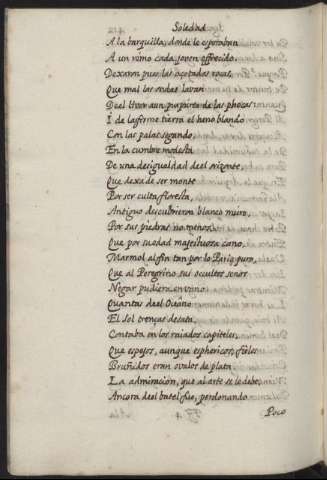 Soledad
A la barquilla, donde le esperaban
A un remo cada joven offrecido.
Dexaron pues las açotadas rocas,
Que mal las ondas lavan
Del liuor aun purpureo de las phocas
I de la firme tierra el heno blando
Con las palas segando,
En la cumbre modesta
De una desigualdad de el orizonte,
Que dexa de ser monte
Por ser culta floresta,
Antiguo descubrieron blanco muro,
Por sus piedras no menos,
Que por su edad majestuosa cano,
Marmol al fin tan por lo Pario puro,
Que al Peregrino sus ocultos senos
Negar pudiera en vano.
Quantas de el Oceano
El Sol trenças desata,
Contaba en los raiados capiteles,
Que espejos, aunque esphericos, fieles
Bruñidos eran ovalos de plata.
La admiracion, que al arte se le debe,
Ancora de el batel fue, perdonando
Poco